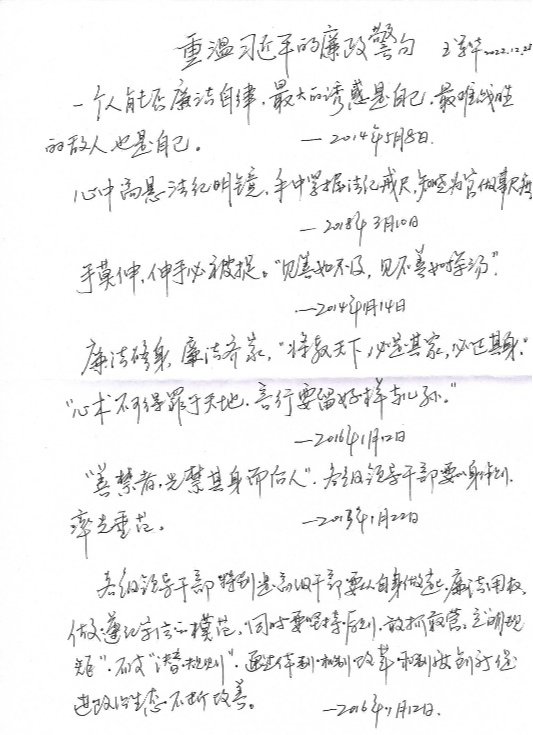 重温习近平的廉政警句 王学华2022.12.28
一个人能否廉洁自律,最大的诱惑是自己,最难战胜
的敌人也是自己。 —2014年5月8日.
心中高悬法纪明镜,手中紧握法纪戒尺,知晓为官做事尺度
—2018年3月10日
手莫伸,伸手必被捉。“见善如不及,见不善如探汤”.
—2014年1月14日
廉洁修身,廉洁齐家,“将教天下,必定其家,必正其身。”
“心术不可得罪于天地,言行要留好样与儿孙。”
—2016年1月12日
“善禁者,先禁其身而后人”.各级领导干部要以身作则.
率先垂范。 —2013年1月22日.
各级领导干部特别是高级干部要从自身做起,廉洁用权,
做遵纪守法的模范,同时要坚持原则、敢抓敢管。立“明规
矩”、破“潜规则”,通过体制机制改革和制度创新促
进政治生态不断改善。 —2016年1月12日.